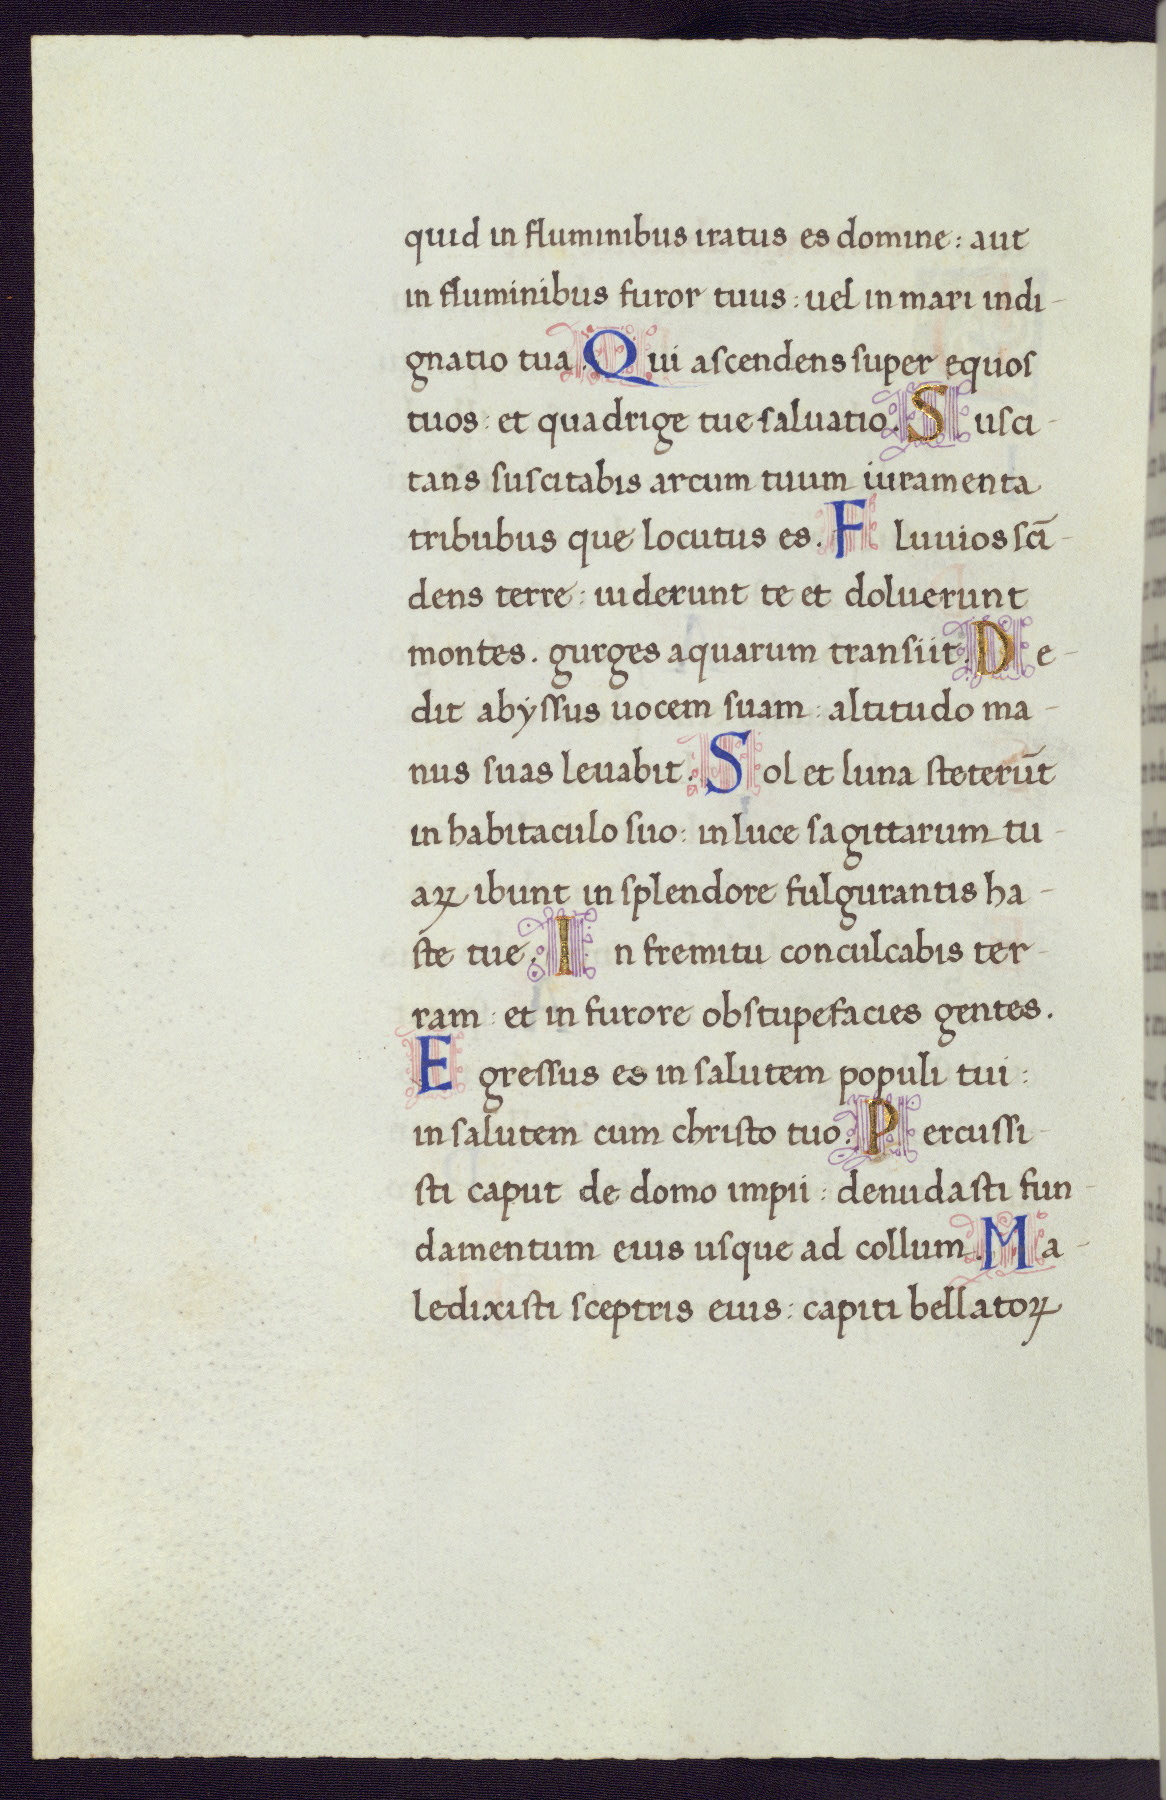 quid in fluminibus iratus es domine: aut
in fluminibus furor tuus: uel in mari indi-
gnatio tua. Qui ascendens super equos
tuos: et quadrige tue saluatio. Susci-
tans suscitabis arcum tuum iuramenta
tribubus que locutus es. Fluuios sci̅-
dens terre: uiderunt te et doluerunt
montes. gurges aquarum transiit. De-
dit abyssus uocem suam: altitudo ma-
nus suas leuabit. Sol et luna steteru̅t
in habitaculo suo: in luce sagittarum tu-
aꝝ ibunt in splendore fulgurantis ha-
ste tue. In fremitu conculcabis ter-
ram: et in furore obstupefacies gentes.
Egressus es in salutem populi tui:
in salutem cum christo tuo. Percussi-
sti caput de domo impii: denudasti fun-
damentum eius usque ad collum. Ma-
ledixisti sceptris eius: capiti bellatoꝝ